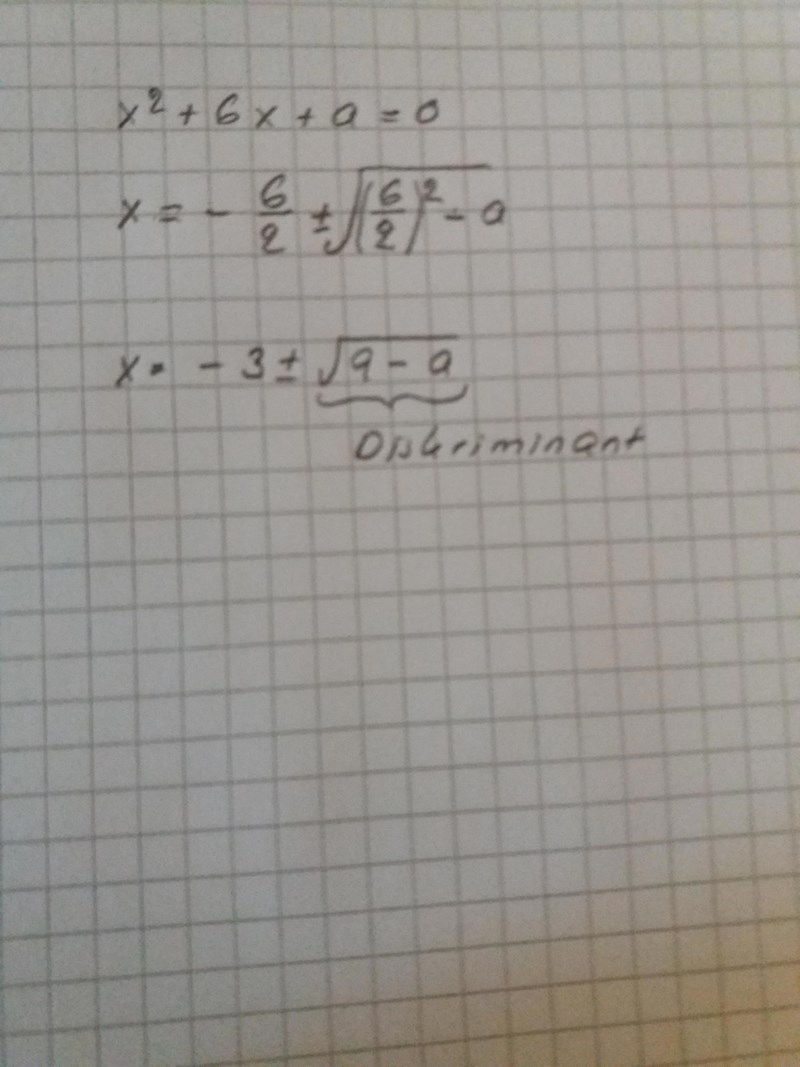 x² + 6x + a = 0
x = - 6/2 ± √(6/2)² - a
x = - 3 ± √9 - a
Diskriminant